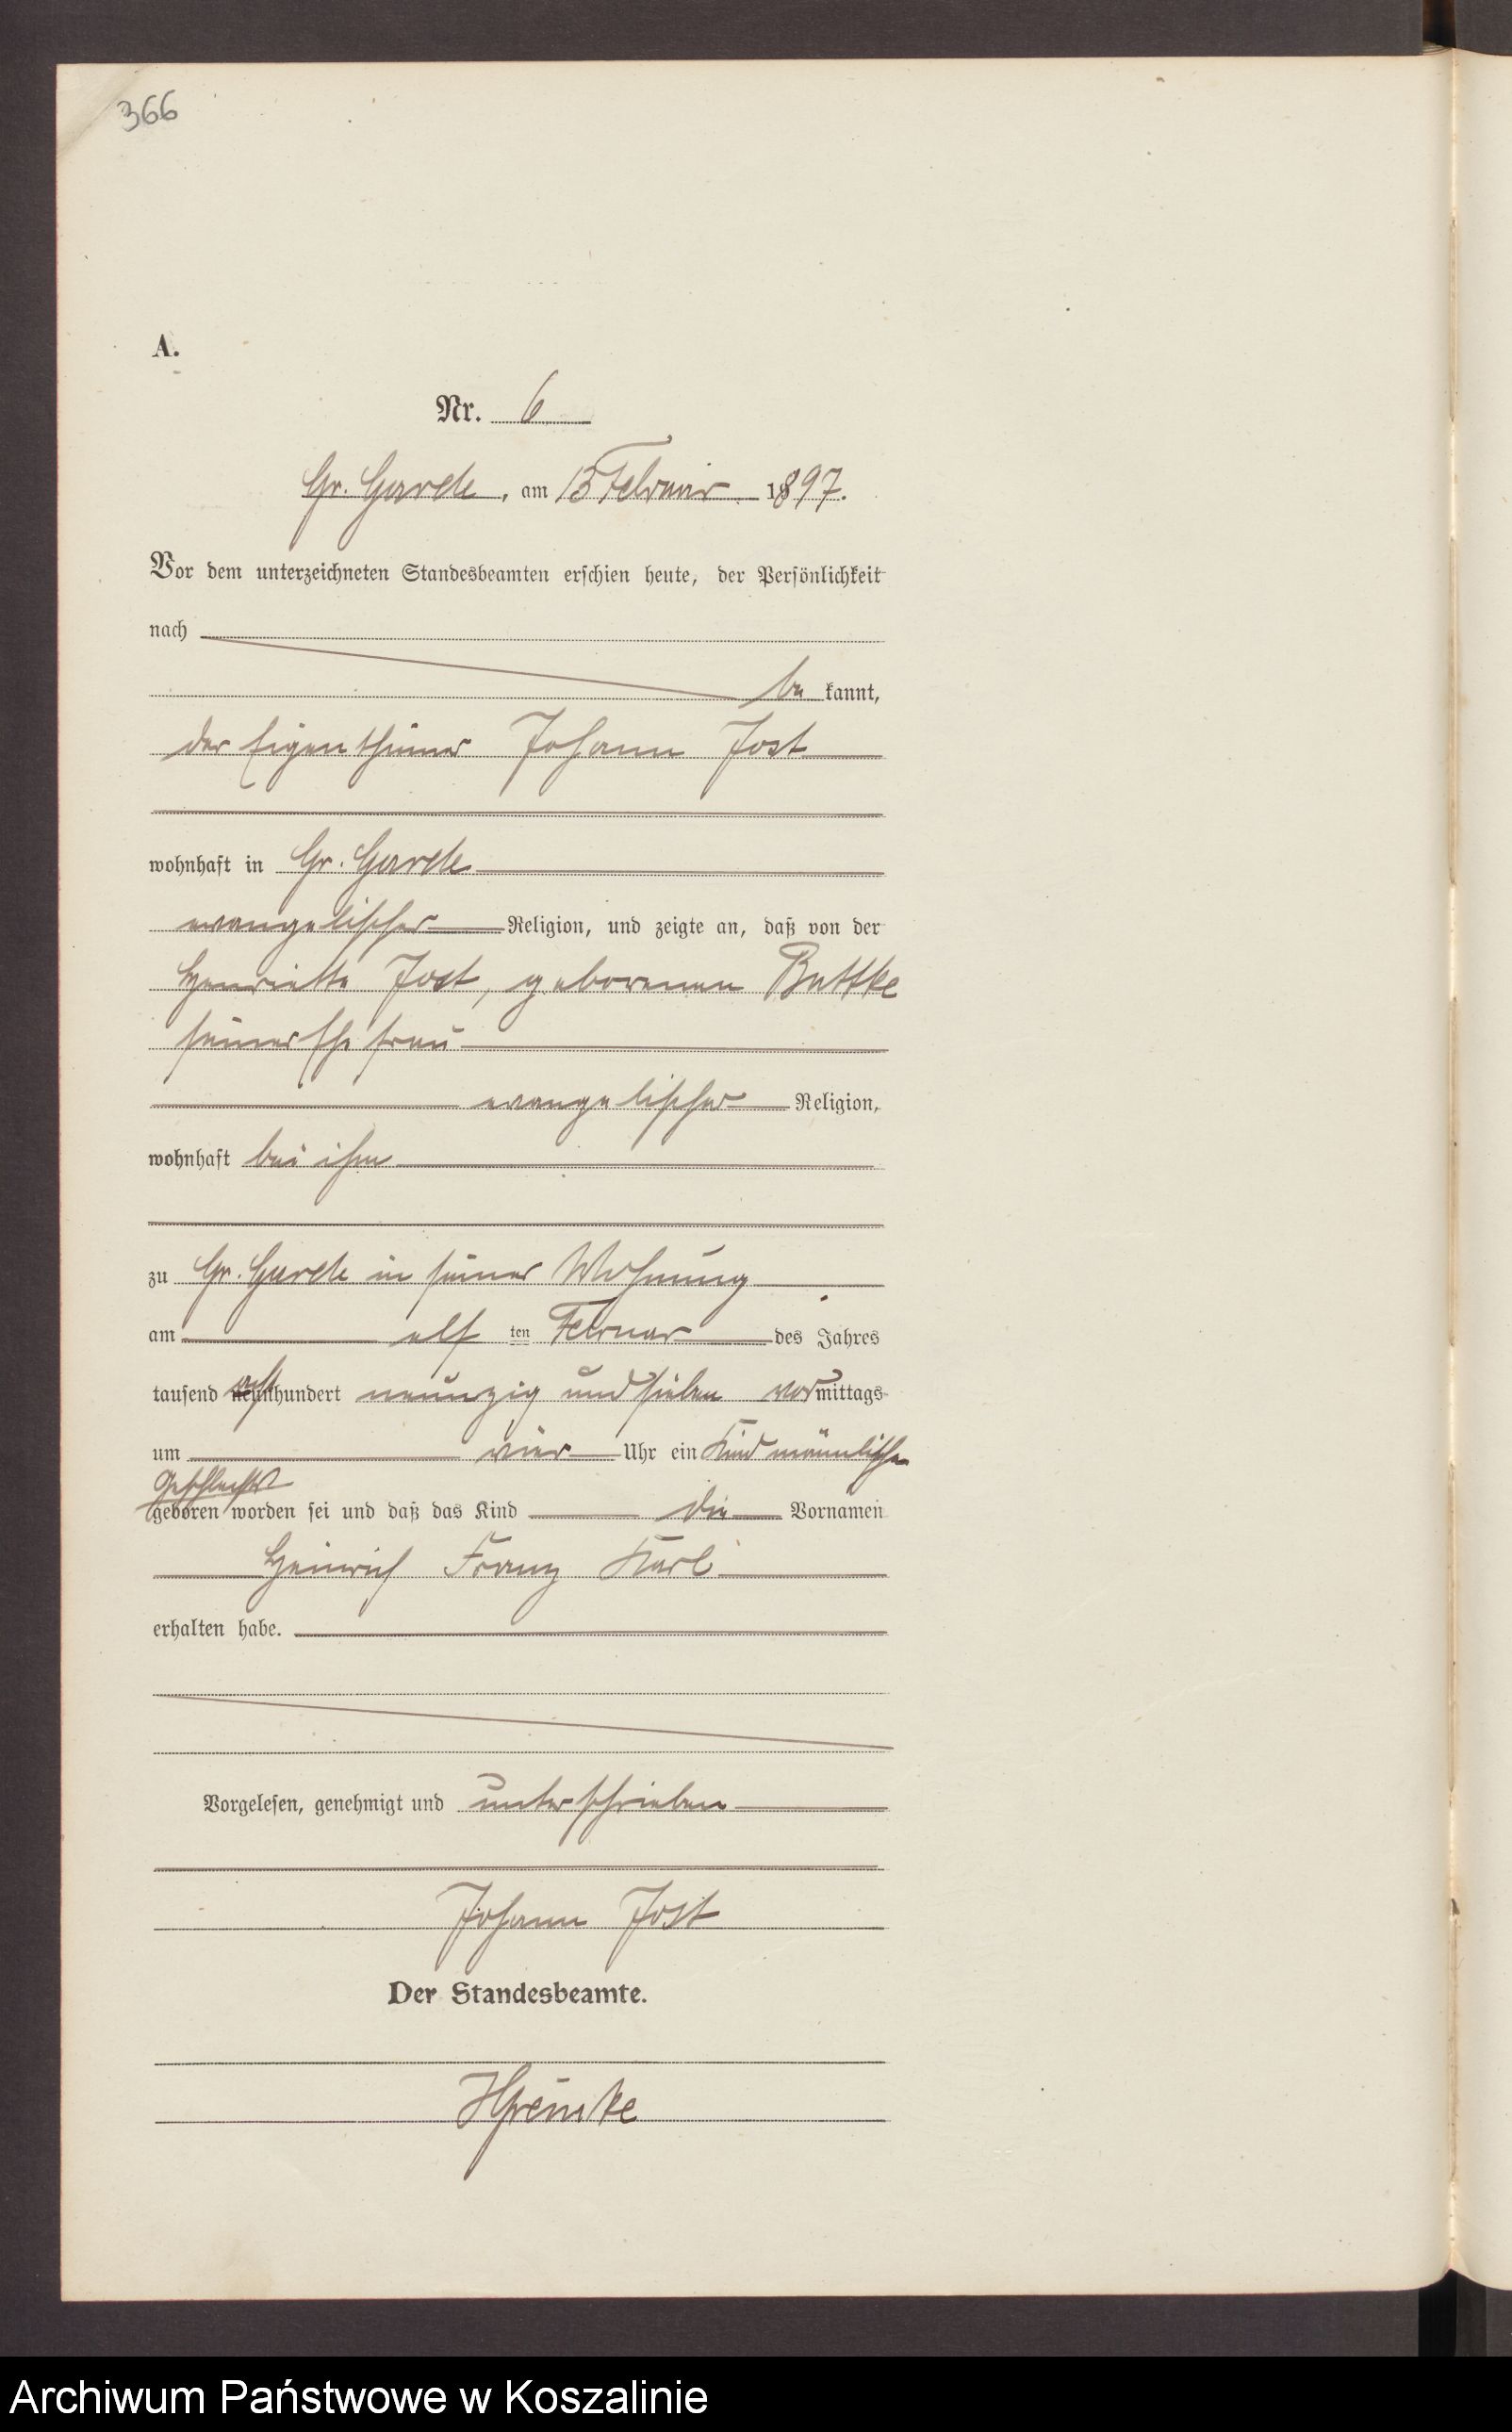 366
A.
Nr. 6
Gr. Garde, am 13 Februar 1897.
Vor dem unterzeichneten Standesbeamten erschien heute, der Persönlichkeit
nach
be kannt,
der Eigenthümer Johann Jost
wohnhaft in Gr. Garde
evangelischer Religion, und zeigte an, daß von der
Henriette Jost, geborenen Buttke
seiner Ehefrau
evangelischer Religion,
wohnhaft bei ihm
zu Gr. Garde in seiner Wohnung
am elf ten Februar des Jahres
tausend achthundert neunzig und sieben vormittags
um vier Uhr ein Kind männlichen
Geschlechts
geboren worden sei und daß das Kind die Vornamen
Heinrich Franz Karl
erhalten habe.
Vorgelesen, genehmigt und unterschrieben
Johann Jost
Der Standesbeamte.
Archiwum Państwowe w Koszalinie